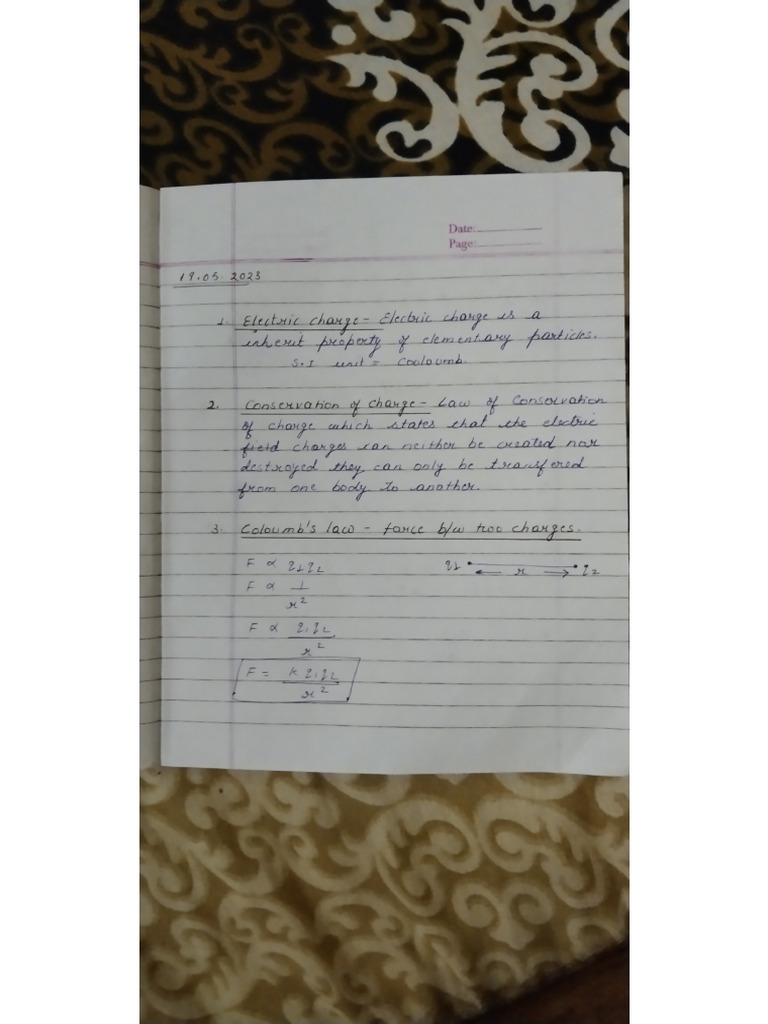 Date:
Page:
19.05.2023
1. Electric charge - Electric charge is a
inherit property of elementary particles.
S.I unit = Cooloumb.
2. Conservation of charge - Law of Conservation
of charge which states that the electric
field charges can neither be created nor
destroyed they can only be transfered
from one body to another.
3. Coloumb's law - force b/w two charges.
F ∝ q1q2
q1 r q2
F ∝ 1/r²
F ∝ q1q2/r²
F = K q1q2/r²